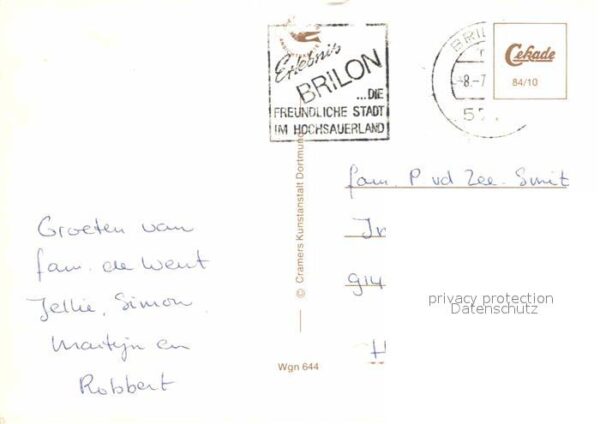 Erlebnis
BRILON
...DIE
FREUNDLICHE STADT
IM HOCHSAUERLAND
BRIL
-8.-7
Cekade
84/10
© Cramers Kunstanstalt Dortmund
fam. P vd Zee. Smit
privacy protection
Datenschutz
Groeten van
fam. de Went
Jellie, Simon
Martijn en
Robbert
Wgn 644